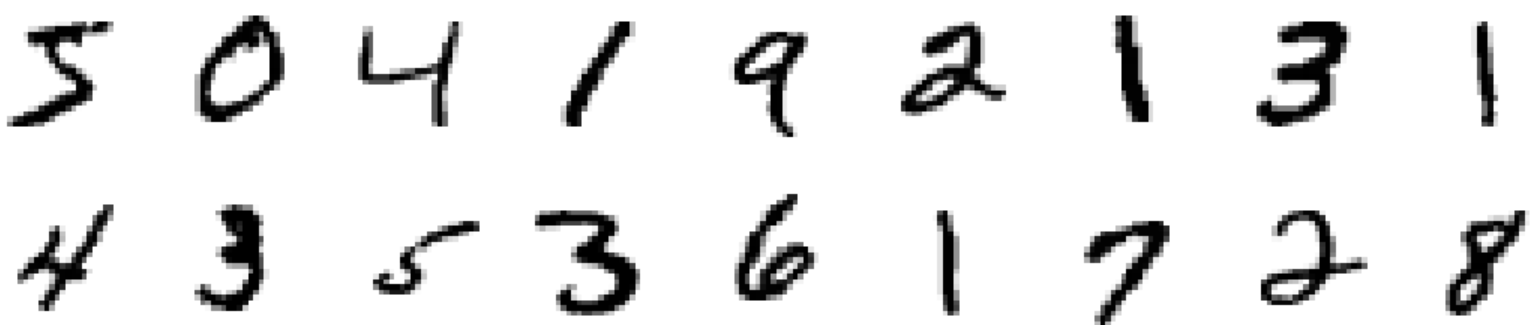 5 0 4 1 9 2 1 3 1
4 3 5 3 6 1 7 2 8